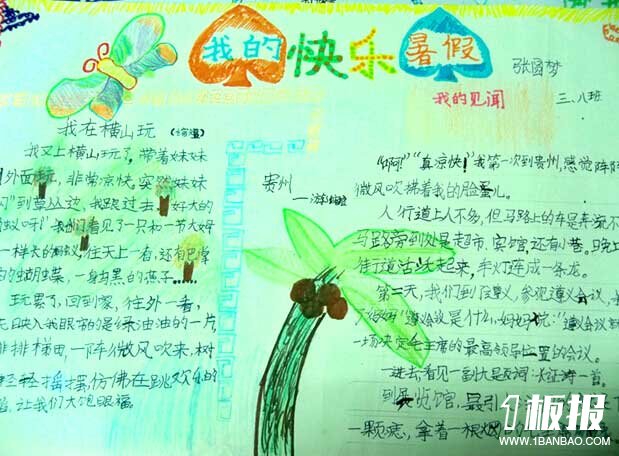 我的快乐暑假
张圆梦
三、八班
我的见闻
我在横山玩
我又上横山玩了,带着妹妹
外面玩,非常凉快。突然妹妹
闪"到草丛边,我跟过去,好大的
蚁呀!我们看见了一只和一节大姆
一样长的蚂蚁,往天上一看,还有巴掌
的蝴蝶,一身黑的燕子……
玩累了,回到家,往外一看,
映入我眼帘的是绿油油的一片
排排梯田,一阵微风吹来,树
轻轻摇摆,仿佛在跳欢乐的
让我们大饱眼福。
贵州
"啊!""真凉快!"我第一次到贵州,感觉阵阵
微风吹拂着我的脸蛋儿。
人行道上人不多,但马路上的车是奔流不
马路旁到处是超市,宾馆,还有小巷。晚上
街道 起来,车灯连成一条龙。
第二天,我们到遵义,参观遵义会议
"遵义会议是什么",妈妈说:"遵义会议
一场决定毛主席的最高领导位置的会议。
一进去看见一副大
到展览馆,最引
一颗痣,拿着一根烟
1板报
WWW.1BANBAO.COM